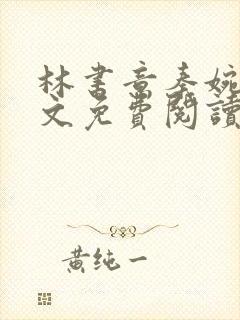 林書音秦婉
文免費閱讀
黃純一